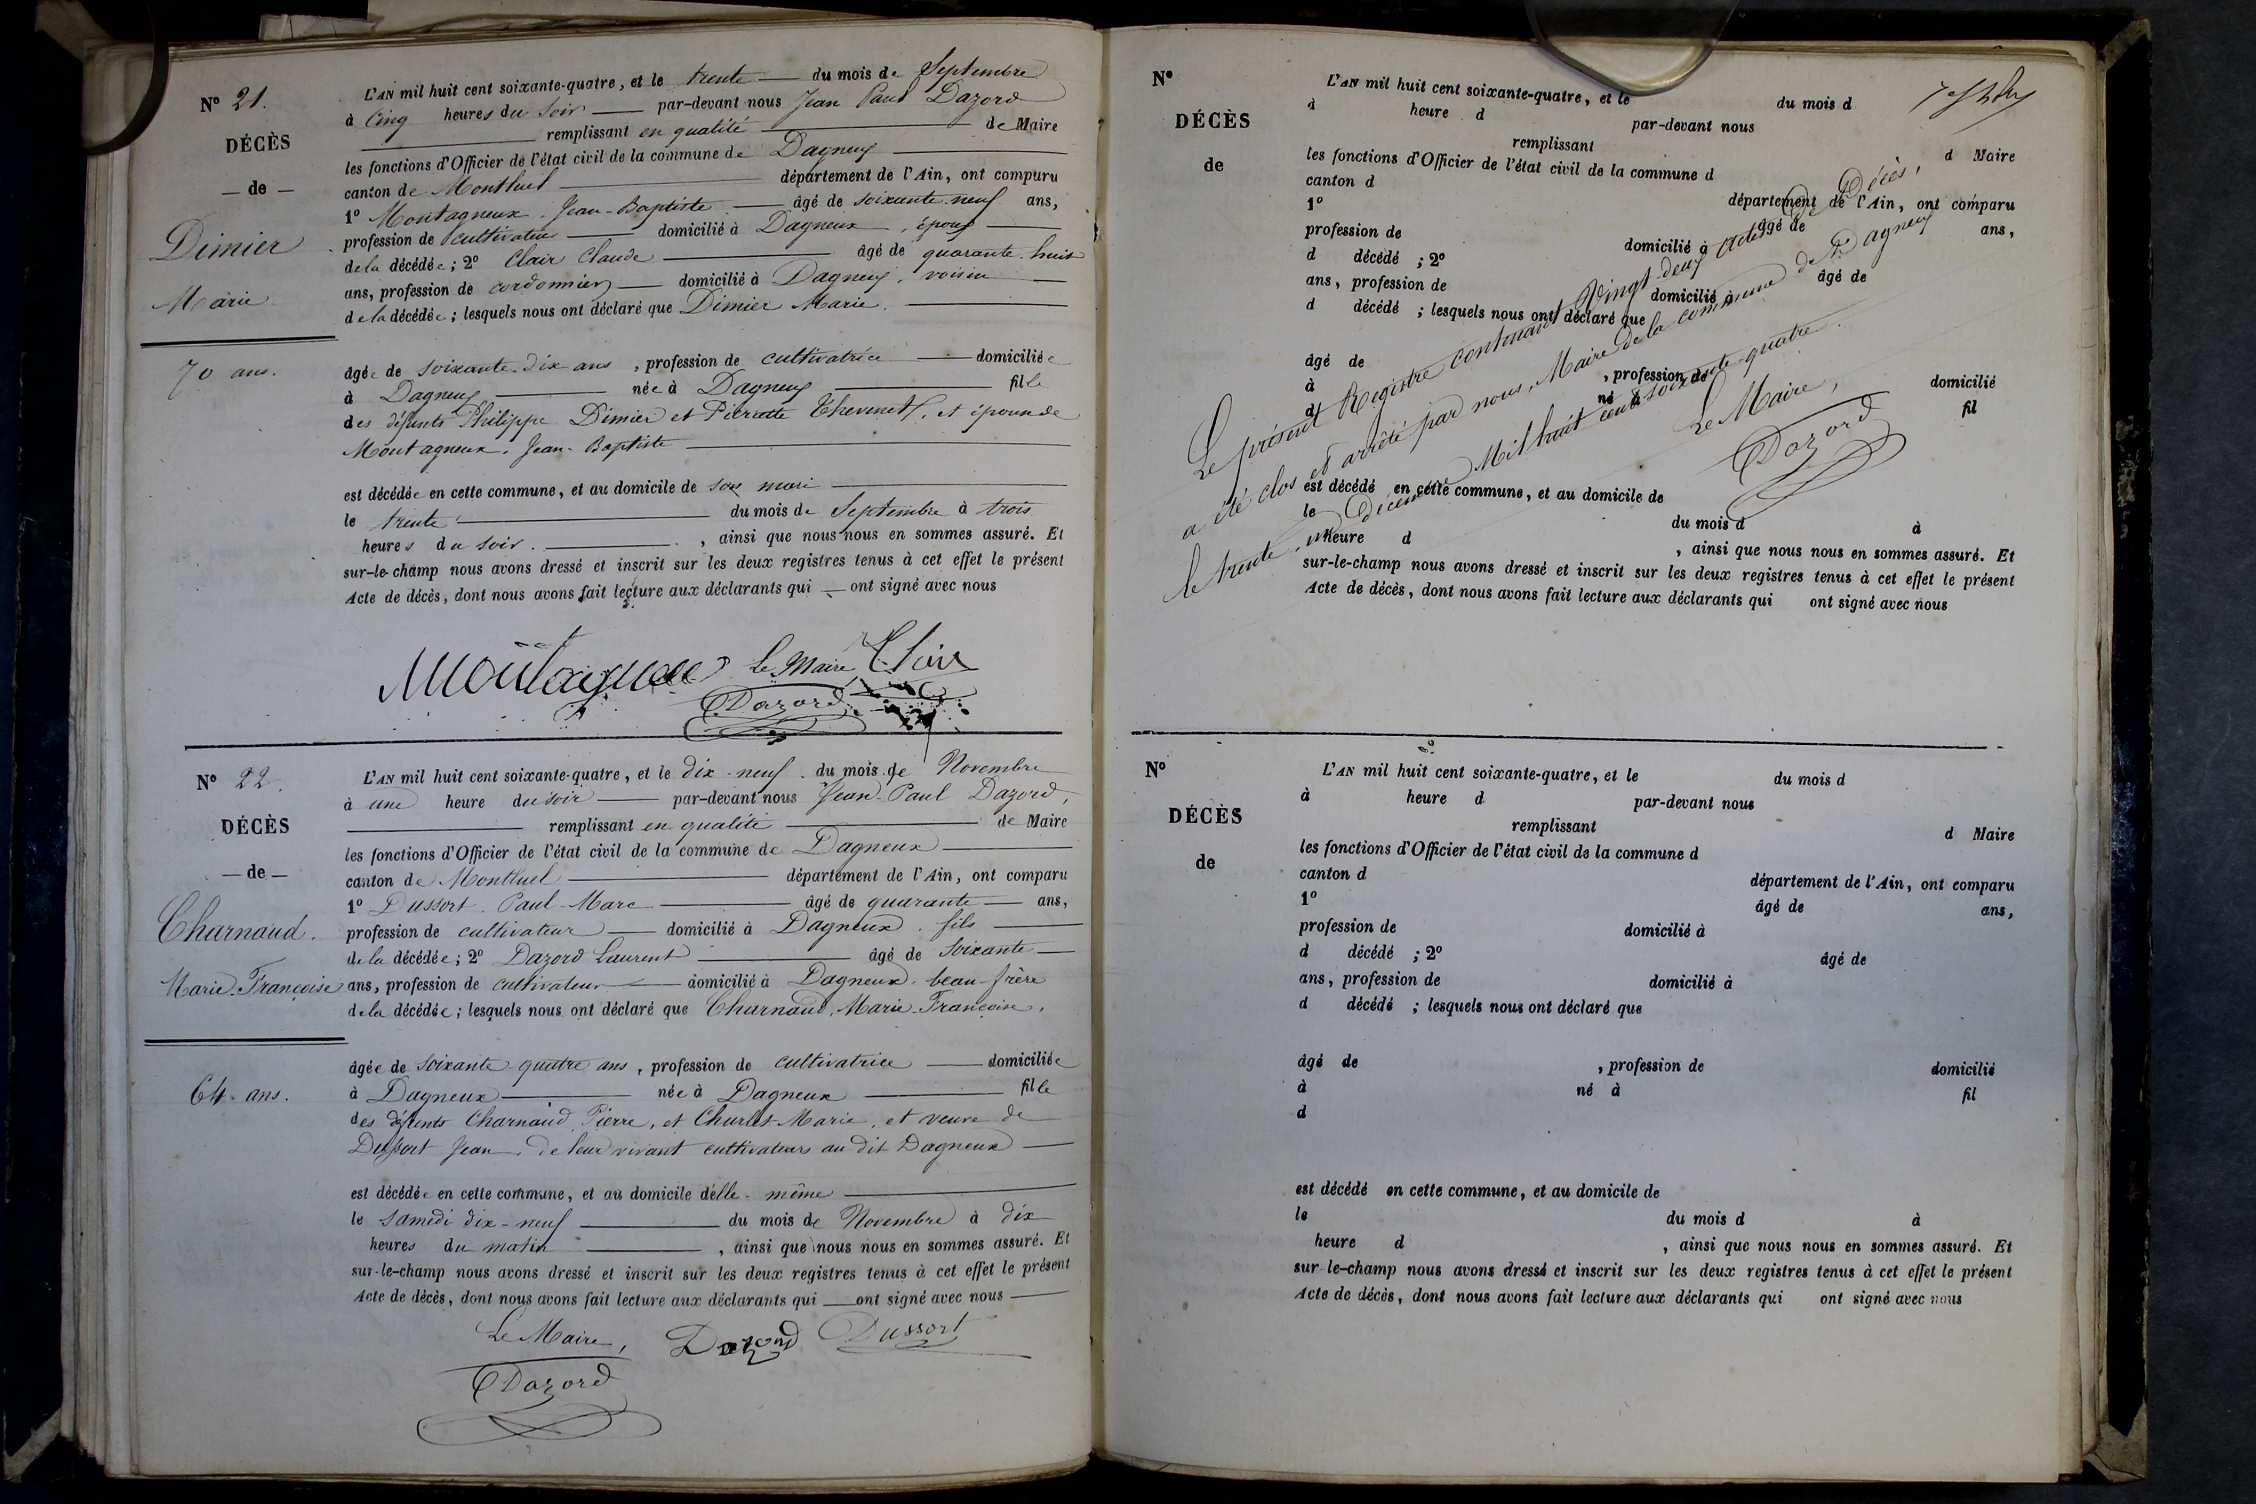 N° 21.
DÉCÈS
— de —
Dimier
Marie
70 ans.
L'AN mil huit cent soixante-quatre, et le trente — du mois de Septembre
à Cinq heures du Soir — par-devant nous Jean Paul Dazord
remplissant en qualité — de Maire
les fonctions d'Officier de l'état civil de la commune de Dagneux
canton de Montluel — département de l'Ain, ont comparu
1° Montagneux Jean-Baptiste — âgé de soixante-neuf ans,
profession de cultivateur — domicilié à Dagneux, époux
de la décédée; 2° Clair Claude — âgé de quarante-huit
ans, profession de cordonnier — domicilié à Dagneux, voisin
de la décédée; lesquels nous ont déclaré que Dimier Marie.
âgée de soixante-dix ans, profession de cultivatrice — domiciliée
à Dagneux — née à Dagneux — fille
des défunts Philippe Dimier et Pierrette Thevenet, et épouse de
Montagneux, Jean-Baptiste
est décédée en cette commune, et au domicile de son mari
le trente — du mois de Septembre à trois
heures du soir. — , ainsi que nous nous en sommes assuré. Et
sur-le-champ nous avons dressé et inscrit sur les deux registres tenus à cet effet le présent
Acte de décès, dont nous avons fait lecture aux déclarants qui — ont signé avec nous
Montagneux Le Maire, Clair
Dazord
N° 22.
DÉCÈS
— de —
Charnaud.
Marie-Françoise
64 ans.
L'AN mil huit cent soixante-quatre, et le dix-neuf du mois de Novembre
à une heure du soir — par-devant nous Jean-Paul Dazord,
remplissant en qualité — de Maire
les fonctions d'Officier de l'état civil de la commune de Dagneux
canton de Montluel — département de l'Ain, ont comparu
1° Dussort Paul-Marc — âgé de quarante — ans,
profession de cultivateur — domicilié à Dagneux, fils
de la décédée; 2° Dazord Laurent — âgé de Soixante
ans, profession de cultivateur — domicilié à Dagneux, beau-frère
de la décédée; lesquels nous ont déclaré que Charnaud, Marie-Françoise,
âgée de soixante-quatre ans, profession de cultivatrice — domiciliée
à Dagneux — née à Dagneux — fille
des défunts Charnaud Pierre, et Marie, et veuve de
Dussort Jean, de leur vivant cultivateurs au dit Dagneux
est décédée en cette commune, et au domicile d'elle-même
le samedi dix-neuf — du mois de Novembre à dix
heures du matin — , ainsi que nous nous en sommes assuré. Et
sur-le-champ nous avons dressé et inscrit sur les deux registres tenus à cet effet le présent
Acte de décès, dont nous avons fait lecture aux déclarants qui — ont signé avec nous
Le Maire, Dazord Dussort
Dazord
N°
DÉCÈS
de
L'AN mil huit cent soixante-quatre, et le du mois d
à heure d par-devant nous
remplissant d Maire
les fonctions d'Officier de l'état civil de la commune d
canton d département de l'Ain, ont comparu
1° âgé de ans,
profession de domicilié à
d décédé ; 2° âgé de
ans, profession de domicilié à
d décédé ; lesquels nous ont déclaré que
âgé de , profession de domicilié
à né à fil
d
Le présent Registre contenant Vingt-deux actes de Décès,
a été clos et arrêté par nous, Maire de la commune de Dagneux
le trente-un Décembre Mil huit cent soixante-quatre.
Le Maire,
Dazord
est décédé en cette commune, et au domicile de
le du mois d à
heure d , ainsi que nous nous en sommes assuré. Et
sur-le-champ nous avons dressé et inscrit sur les deux registres tenus à cet effet le présent
Acte de décès, dont nous avons fait lecture aux déclarants qui ont signé avec nous
N°
DÉCÈS
de
L'AN mil huit cent soixante-quatre, et le du mois d
à heure d par-devant nous
remplissant d Maire
les fonctions d'Officier de l'état civil de la commune d
canton d département de l'Ain, ont comparu
1° âgé de ans,
profession de domicilié à
d décédé ; 2° âgé de
ans, profession de domicilié à
d décédé ; lesquels nous ont déclaré que
âgé de , profession de domicilié
à né à fil
d
est décédé en cette commune, et au domicile de
le du mois d à
heure d , ainsi que nous nous en sommes assuré. Et
sur-le-champ nous avons dressé et inscrit sur les deux registres tenus à cet effet le présent
Acte de décès, dont nous avons fait lecture aux déclarants qui ont signé avec nous